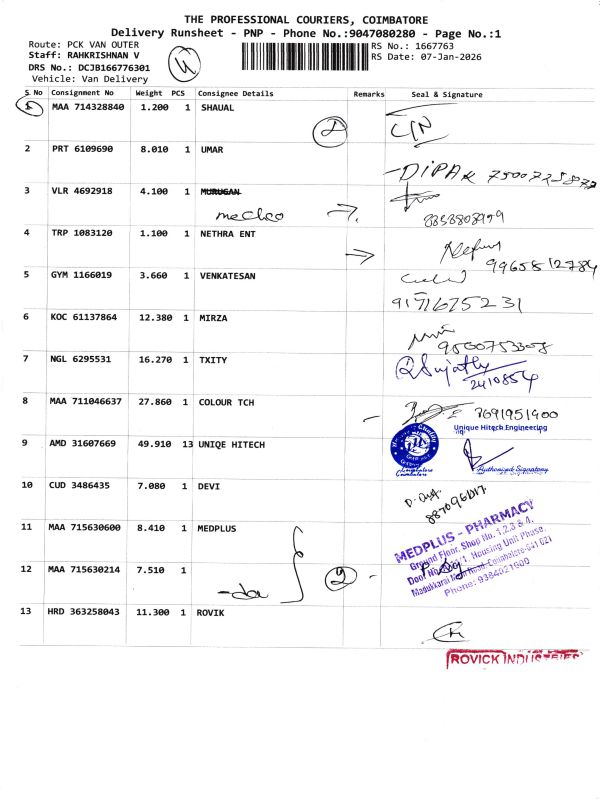 THE PROFESSIONAL COURIERS, COIMBATORE
Delivery Runsheet - PNP - Phone No.:9047080280 - Page No.:1
Route: PCK VAN OUTER
Staff: RAHKRISHNAN V
DRS No.: DCJB166776301
Vehicle: Van Delivery
RS No.: 1667763
RS Date: 07-Jan-2026
S. No Consignment No Weight PCS Consignee Details Remarks Seal & Signature
1 MAA 714328840 1.200 1 SHAUAL
2 PRT 6109690 8.010 1 UMAR
DIPAK
3 VLR 4692918 4.100 1 MURUGAN
4 TRP 1083120 1.100 1 NETHRA ENT
9965812784
5 GYM 1166019 3.660 1 VENKATESAN
9171675231
6 KOC 61137864 12.380 1 MIRZA
9500753308
7 NGL 6295531 16.270 1 TXITY
Sujatha
2410854
8 MAA 711046637 27.860 1 COLOUR TCH
7691951900
9 AMD 31607669 49.910 13 UNIQE HITECH
Unique Hitech Engineering
Authorised Signatory
Coimbatore
10 CUD 3486435 7.080 1 DEVI
11 MAA 715630600 8.410 1 MEDPLUS
12 MAA 715630214 7.510 1
-do-
2
MEDPLUS - PHARMACY
Ground Floor, Shop No. 1,2,3 & 4,
Housing Unit Phase,
Coimbatore-641 021
Phone: 9384021600
13 HRD 363258043 11.300 1 ROVIK
ROVICK INDUSTRIES